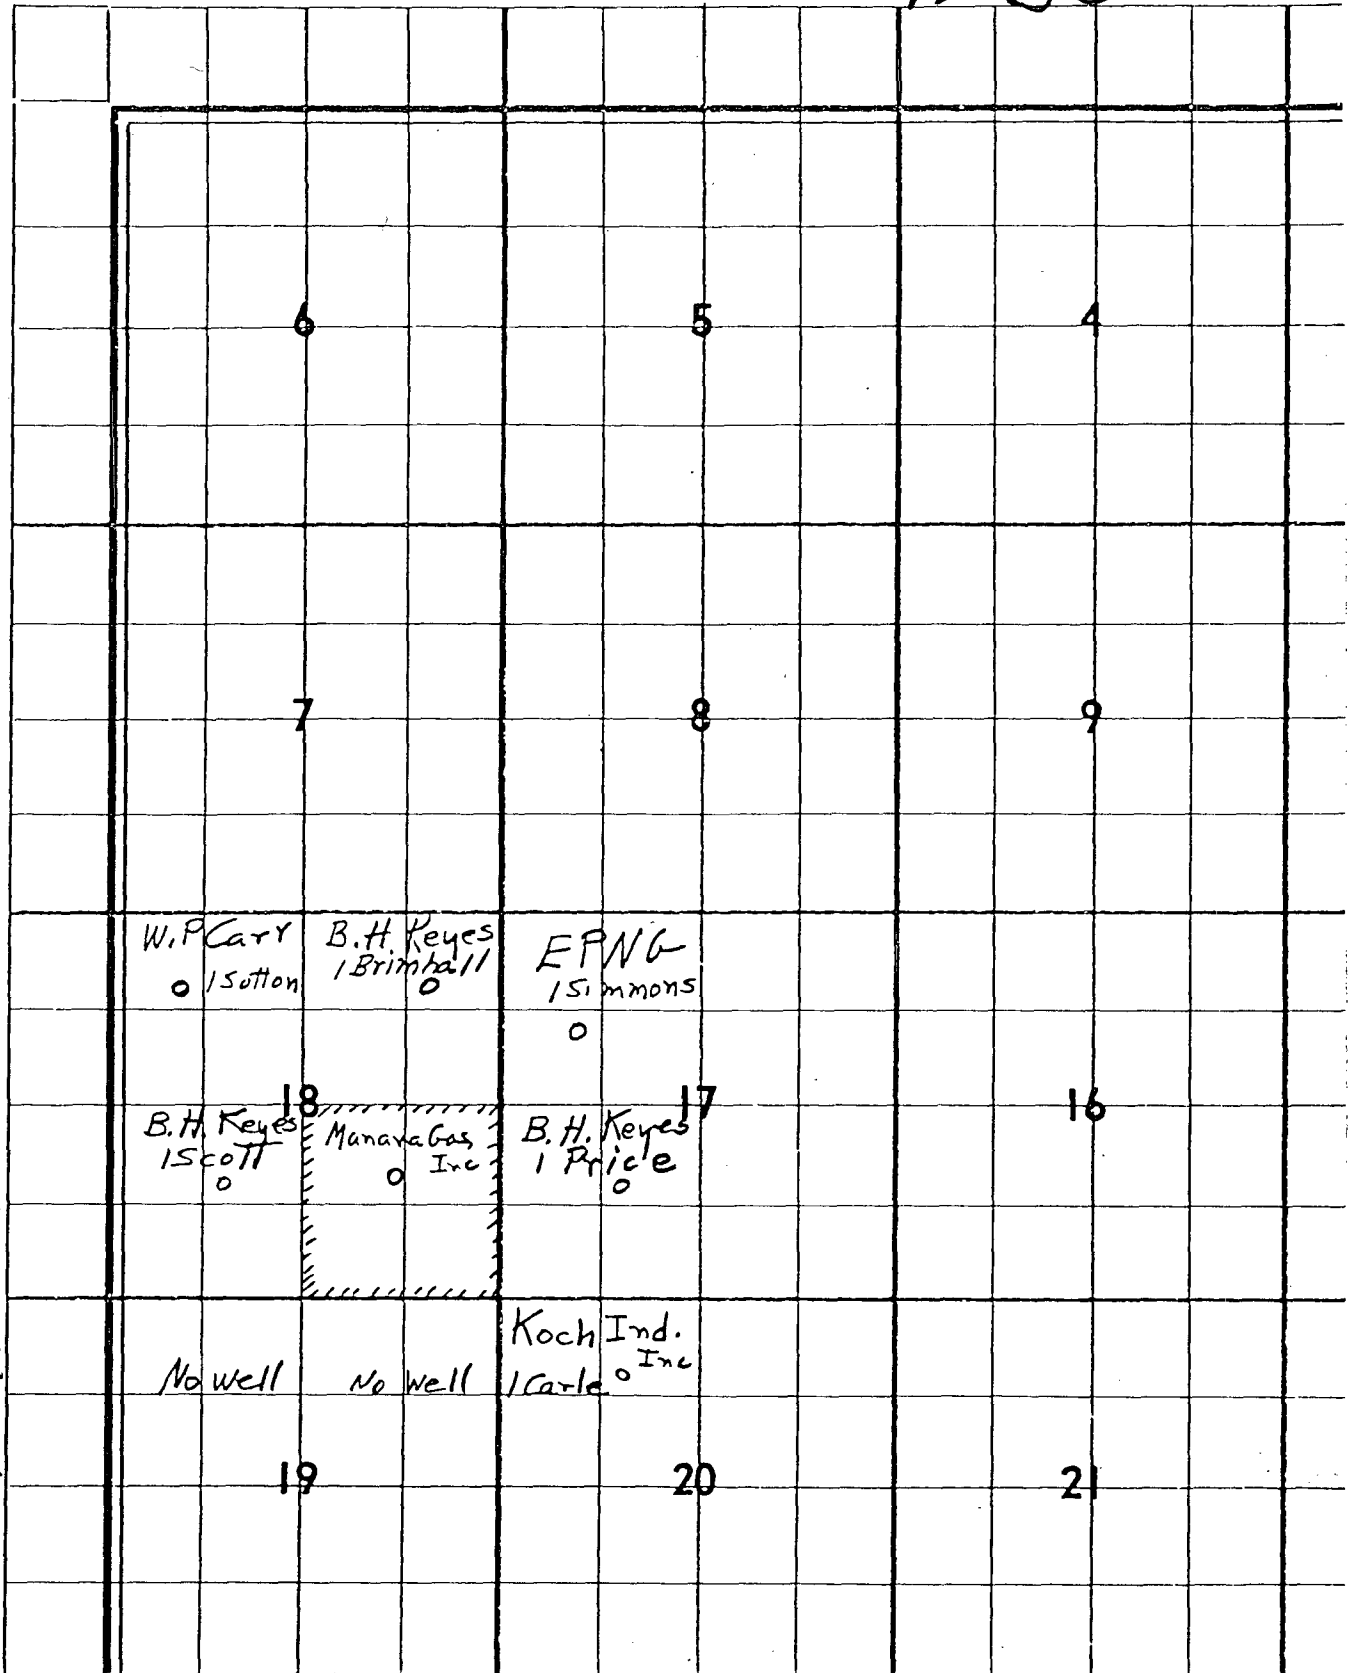 6 5 4
7 8 9
W.P Carr
1 Sutton
B.H. Keyes
1 Brimhall
EPNG
1 Simmons
18 17 16
B.H. Keyes
1 Scott
Manana Gas
Inc
B.H. Keyes
1 Price
No well
No well
Koch Ind.
Inc
1 Carle
19 20 21